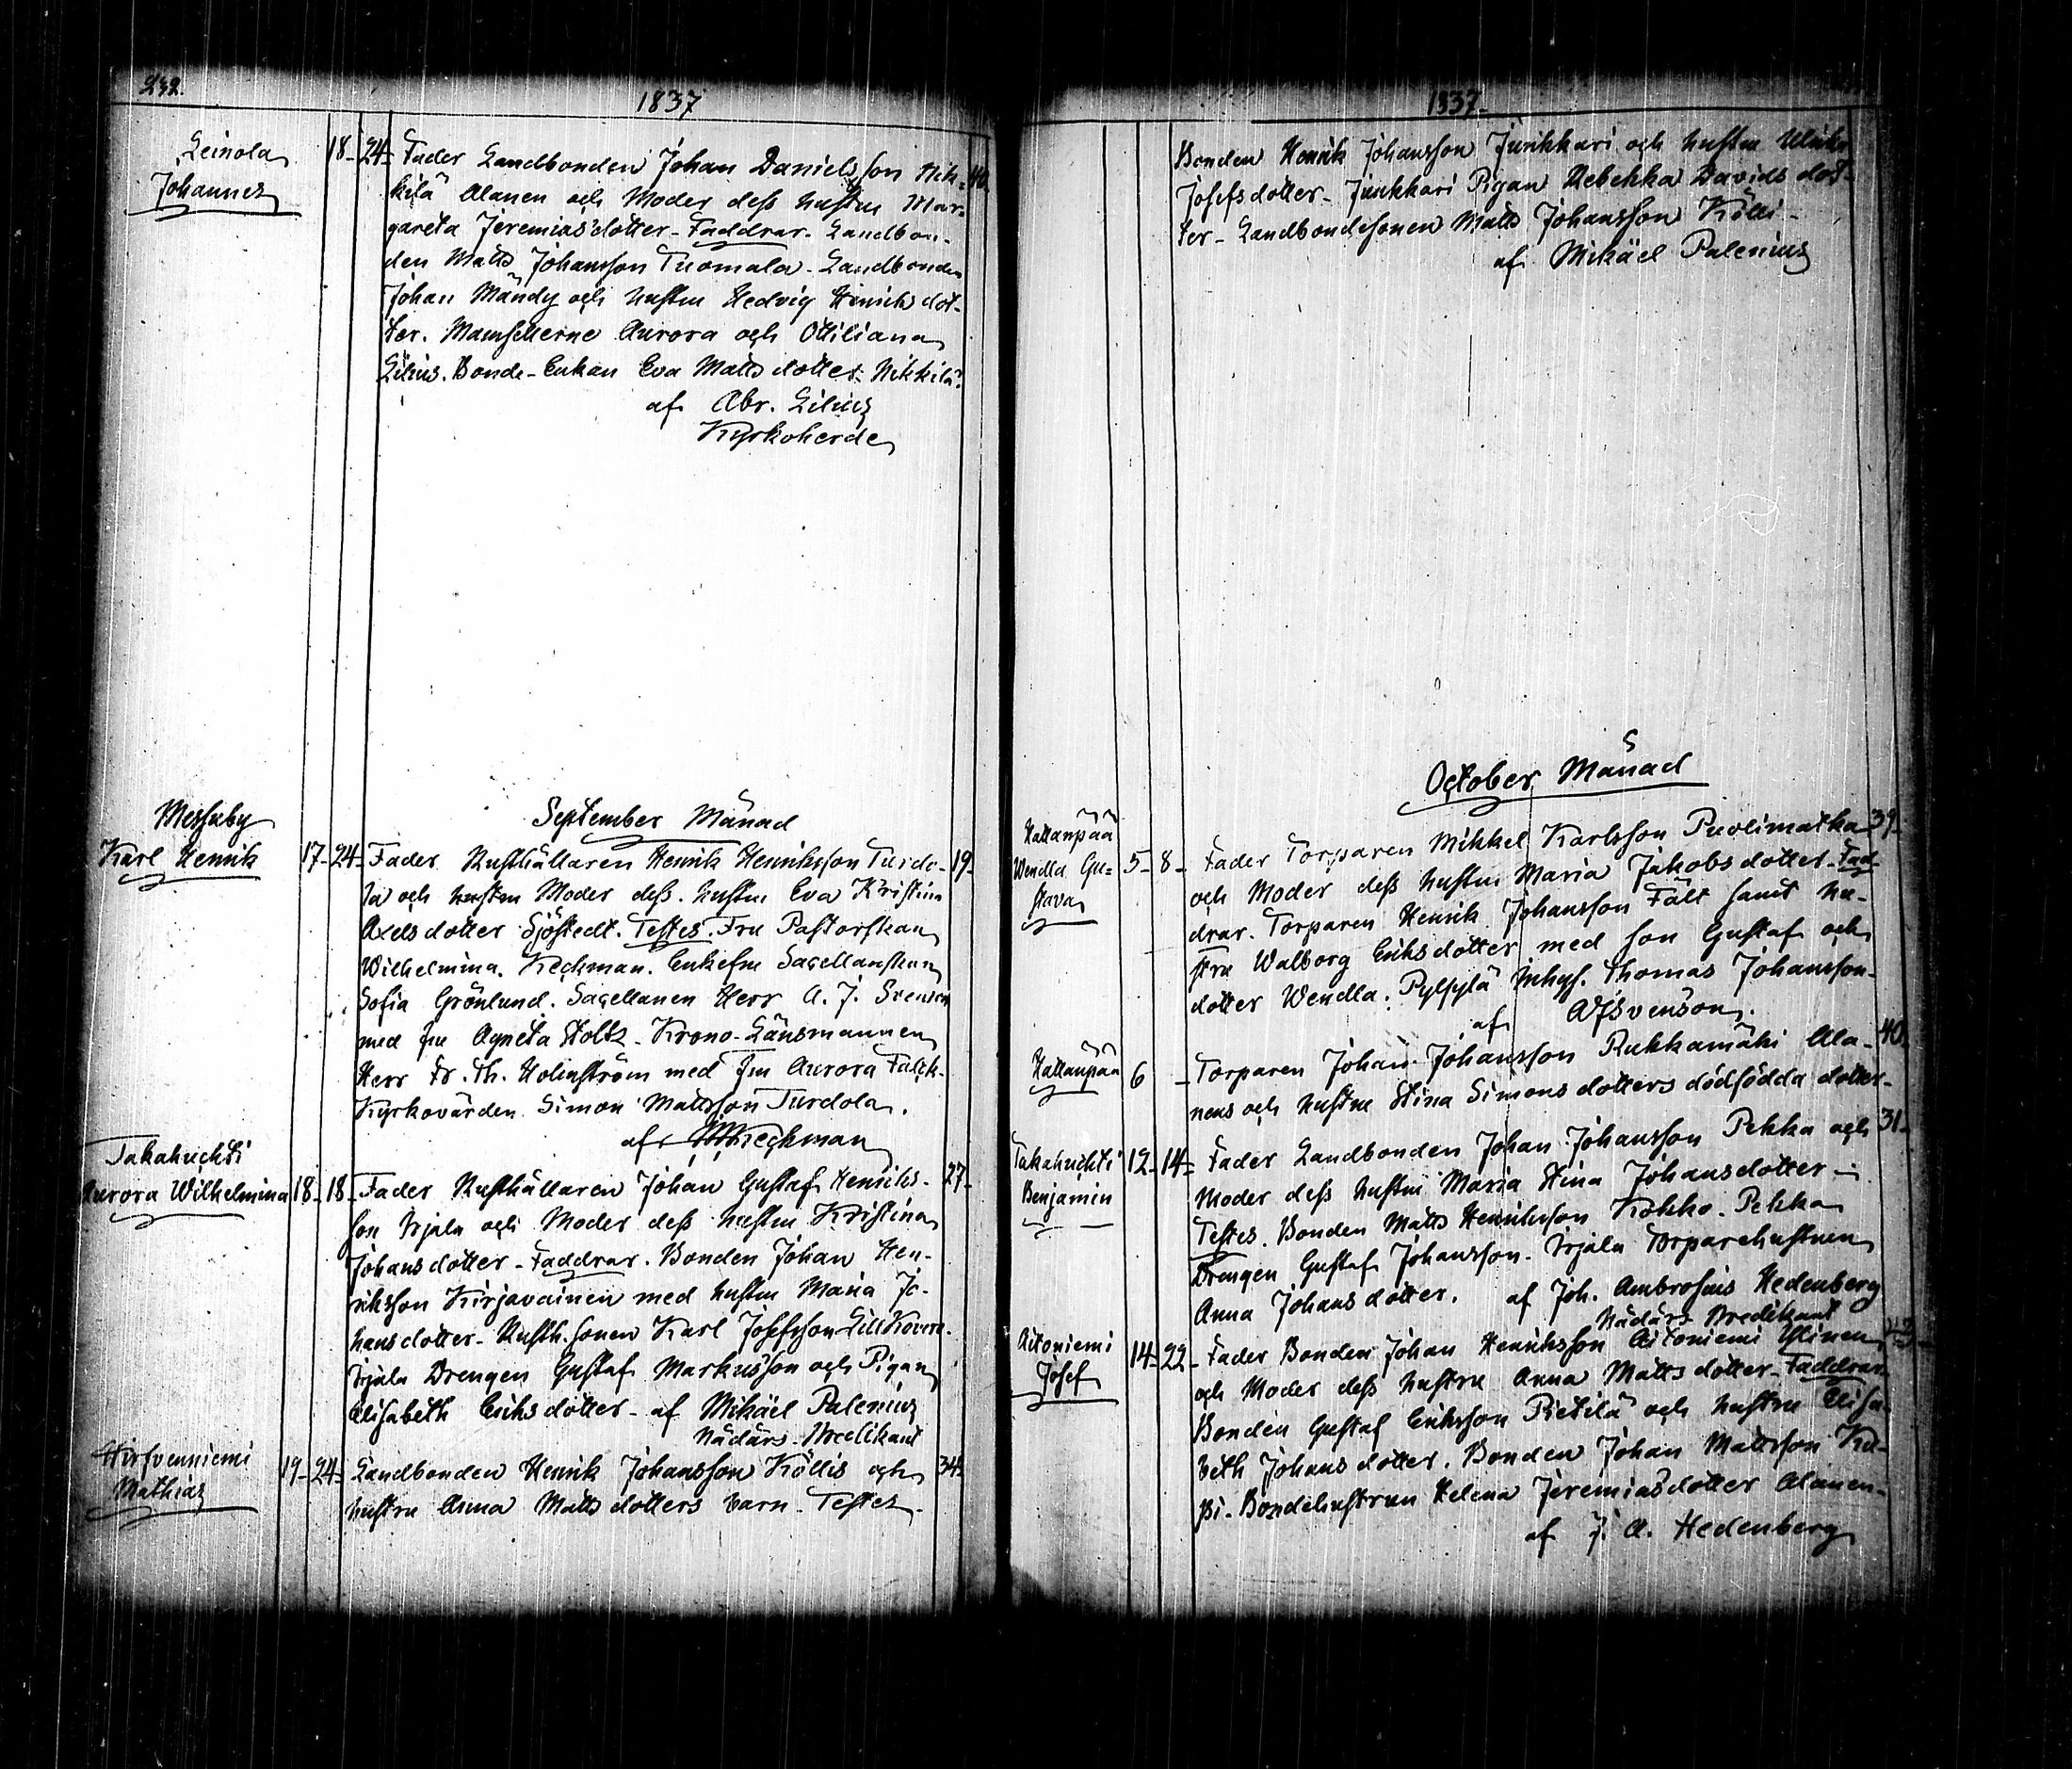 232.
1837
Leinola
Johannes
18- 24- Fader Landbonden Johan Danielsson Nik- 40
kilä Alanen och Moder dess hustru Mar-
gareta Jeremiasdotter - Faddrar. Landbon-
den Matts Johansson Tuomala - Landbonden
Johan Mandy och hustru Hedvig Henriksdot-
ter. Mamsellerne Aurora och Ottiliana
Lilius. Bonde-Enkan Eva Mattsdotter Nikkilä.
af Abr. Lilius
Kyrkoherde
Messuby
September Månad
Karl Henrik 17- 24- Fader Rusthållaren Henrik Henriksson Turdo- 19-
la och hustru Moder dess hustru Eva Kristina
Axelsdotter Sjöstedt. Testes. Fru Pastorskan
Wilhelmina Keckman. Enkefru Sacellanskan
Sofia Grönlund. Sacellanen Herr A. J. Svenson
med fru Agneta Stoltz - Krono-Länsmannen
Herr Fr. Th. Holmström med Fru Aurora Falck-
Kyrkovärden Simon Mattsson Turdola.
af Keckman
Takahuchti
Aurora Wilhelmina 18- 18- Fader Rusthållaren Johan Gustaf Henriks- 27-
son Irjala och Moder dess hustru Kristina
Johansdotter - Faddrar. Bonden Johan Hen-
riksson Kirjavainen med hustru Maria Jo-
hansdotter - Rusth. sonen Karl Josefsson Lill
Irjala Drengen Gustaf Markusson och Pigan
Elisabeth Eriksdotter - af Mikäel Palenius
Nådårs-Predikant
Hirfvenniemi
Mathias
19- 24- Landbonden Henrik Johansson Köllis och 34-
hustru Anna Mattsdotters barn - Testes -
1837-
Bonden Henrik Johansson Junkkari och hustru Ulrika
Josefsdotter - Junkkari Pigan Rebekka Davidsdot-
ter - Landbondesonen Matts Johansson Kölli -
af Mikäel Palenius
October Månad
Hattanpää
Wendla Gu-
stava
5- 8- Fader Torparen Mikkel Karlsson Puolimatka 39-
och Moder dess hustru Maria Jakobsdotter - Fad-
drar. Torparen Henrik Johansson Fält samt hu-
stru Walborg Eriksdotter med son Gustaf och
dotter Wendla. Pylsylä Inhys. Thomas Johansson-
af AJSvenson.
Hattanpää 6 - Torparen Johan Johansson Rukkamäki Ala- 40.
nens och hustru Stina Simonsdotters dödfödda dotter-
Takahuchti
Benjamin
12- 14- Fader Landbonden Johan Johansson Pekka och 31-
Moder dess hustru Maria Stina Johansdotter -
Testes. Bonden Matts Henriksson Kokko. Pekka
Drengen Gustaf Johansson - Irjala Torparehustrun
Anna Johansdotter. af Joh. Ambrosius Hedenberg
Nådårs Predikant
Aitoniemi
Josef
14- 22- Fader Bonden Johan Henriksson Aitoniemi Ylinen
och Moder dess hustru Anna Mattsdotter - Faddrar
Bonden Gustaf Eriksson Pietilä och hustru Elisa-
beth Johansdotter. Bonden Johan Mattsson Ku-
psi - Bondehustrun Helena Jeremiasdotter Alanen-
af J. A. Hedenberg